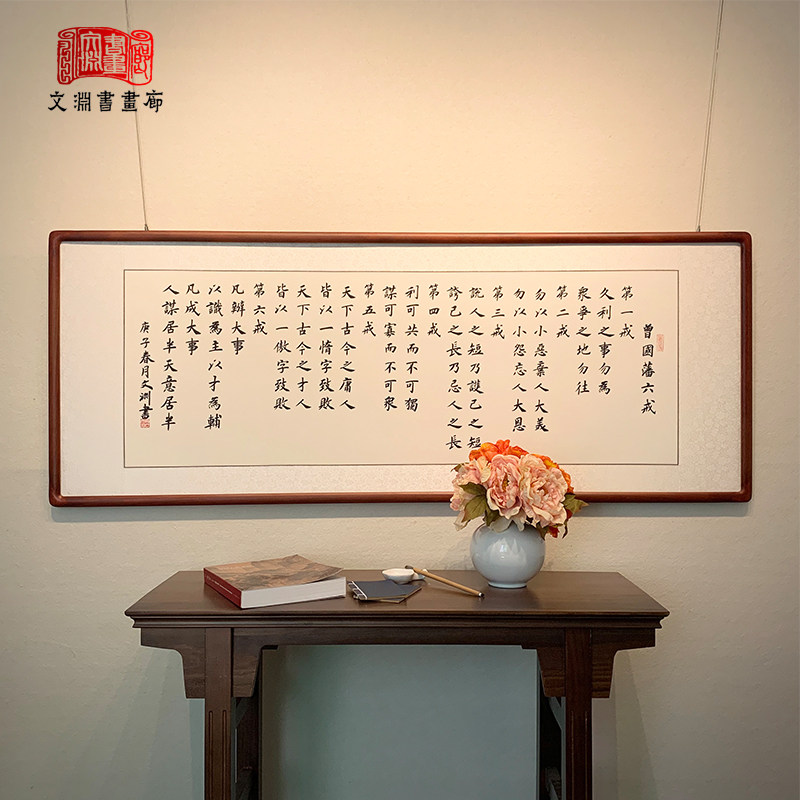 文淵書畫廊
曾國藩六戒
第一戒
久利之事勿為
衆爭之地勿往
第二戒
勿以小惡棄人大美
勿以小怨忘人大恩
第三戒
說人之短乃護己之短
誇己之長乃忌人之長
第四戒
利可共而不可獨
謀可寡而不可衆
第五戒
天下古今之庸人
皆以一惰字致敗
天下古今之才人
皆以一傲字致敗
第六戒
凡辦大事
以識為主以才為輔
凡成大事
人謀居半天意居半
庚子春月文淵書